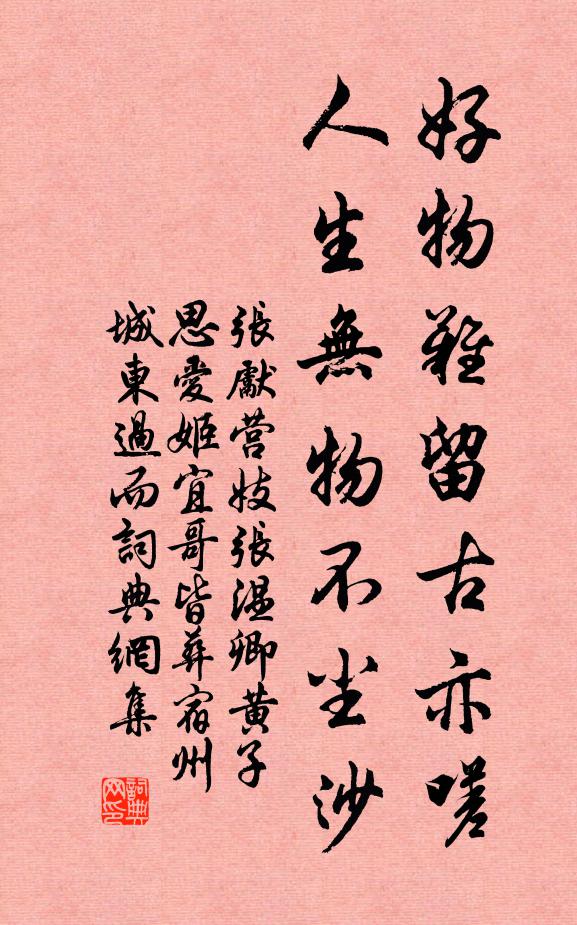 好物難留古亦嗟
人生無物不尘沙
張獻营妓張温卿黄子
思愛姬宜哥皆葬宿州
城東過而詞典網集
詞典网印